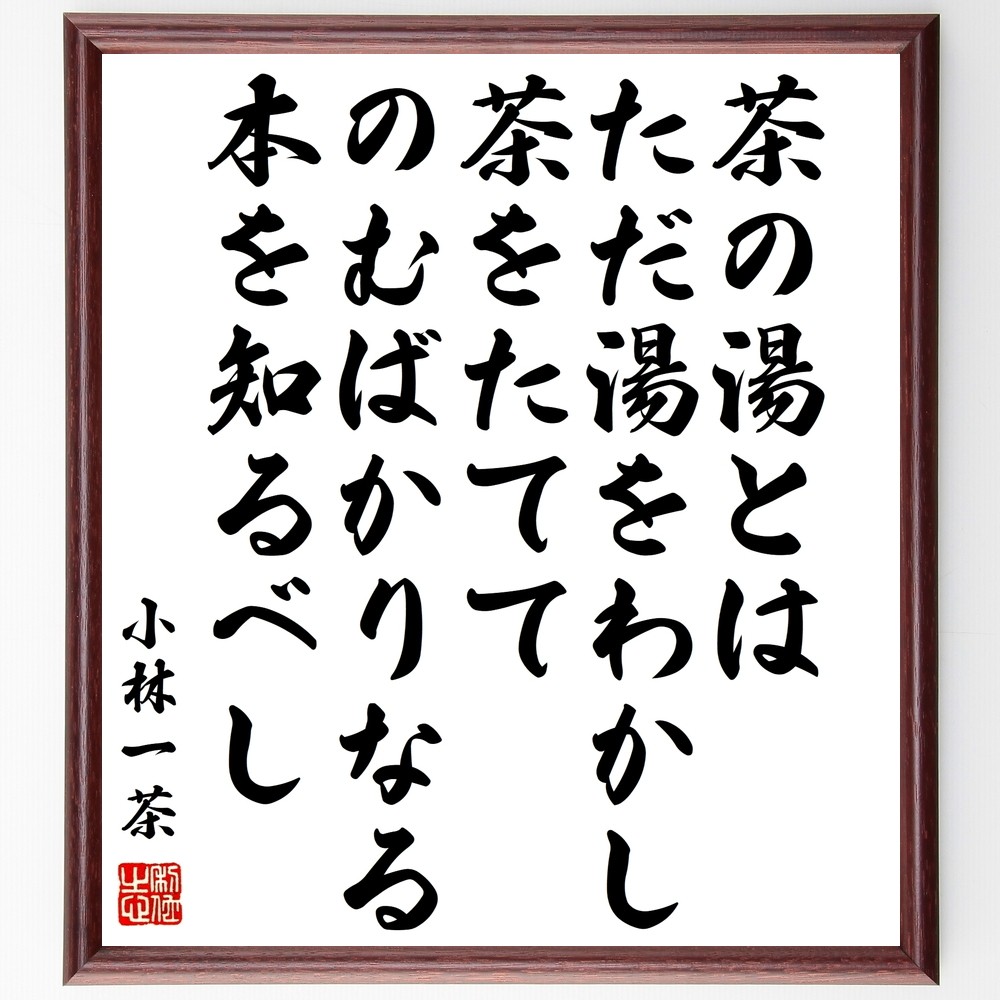 茶の湯とは
ただ湯をわかし
茶をたてて
のむばかりなる
本を知るべし
小林一茶